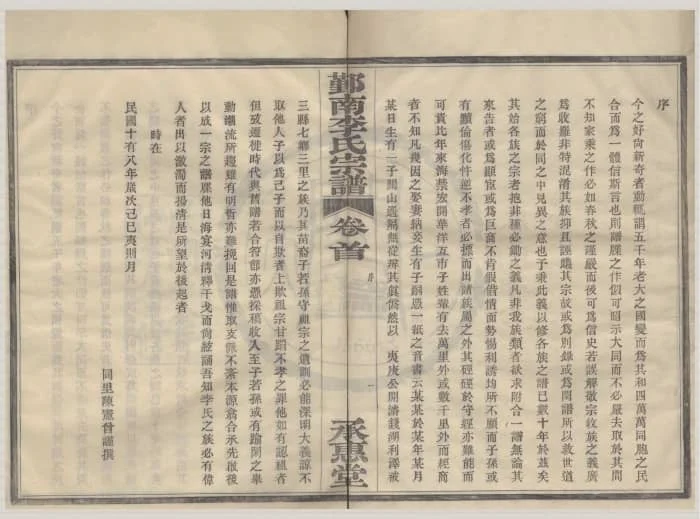 序
今之好尚新奇者動輒謂五千年老大之國變而爲其和四萬萬同胞之民
合而爲一體信斯言也則譜牒之作似可昭示大同而不必嚴去取於其間
不知家乘之作必如春秋之謹嚴而後可爲信史若誤解敬宗收族之義廣
爲收羅非特混淆其族抑且誣衊其宗故或爲別錄或爲閏譜所以救世道
之窮而於同之中見異之意也予秉此義以修各族之譜已數十年於茲矣
其始各族之宗者抱非種必鋤之義凡非我族類者欲求附合一譜無論其
來告者或爲顯宦或爲巨商不肯徇借情面勢惕利誘均所不顧而子孫或
有黷倫傷化忤逆不孝者必擯而出諸族屬之外其硜硜於守經亦難能而
可貴比年東海禁宏開華洋互市子姓輩有去萬里外或數千里外而經商
者不知凡幾因之娶妻納妾生有子嗣憑一紙之音書云某某於某年某月
某日生有一子關山迢隔無從辨其眞僞然以 夷庚公開濬錢湖利澤被
鄞南李氏宗譜
卷首
序
一
承惠堂
三縣七鄉三里之族乃其苗裔子若孫守祖宗之遺訓必能深明大義諒不
取他人子以爲己子而以自欺者上欺祖宗甘蹈不孝之罪他如有認祖者
但或遷徙時代與舊譜者合符節亦憑採稿收入至子若孫或有踰閑之舉
動潮流所趨雖有明哲亦難挽回是譜惟取支派不紊本源爲合承先啟後
以成一宗之譜牒他日海宴河清釋干戈而尙絃誦吾知李氏之族必有偉
人者出以激濁而揚淸是所望於後起者
時在
民國十有八年歲次己巳夷則月
同里陳憲曾謹撰